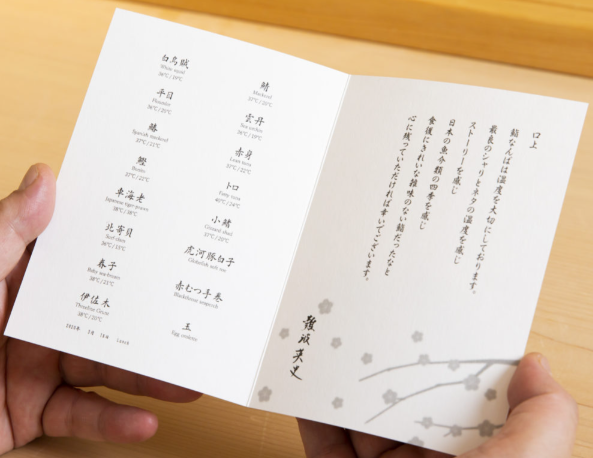 白烏賊
White squid
36℃/19℃
平目
Flounder
鰆
Spanish mackerel
37℃/21℃
鰹
Bonito
37℃/22℃
車海老
Japanese tiger prawn
38℃/38℃
北寄貝
Surf clam
春子
Baby sea bream
伊佐木
鯖
Mackerel
雲丹
Sea urchin
赤身
Lean tuna
トロ
Fatty tuna
小鰭
Gizzard shad
虎河豚白子
赤むつ手巻
玉
Egg omelette
Lunch
口上
鮨なんばは温度を大切にしております。
最良のシャリとネタの温度を感じ
ストーリーを感じ
日本の魚介類の四季を感じ
食後にきれいな雑味のない鮨だったなと
心に残っていただければ幸いでございます。
難波英史